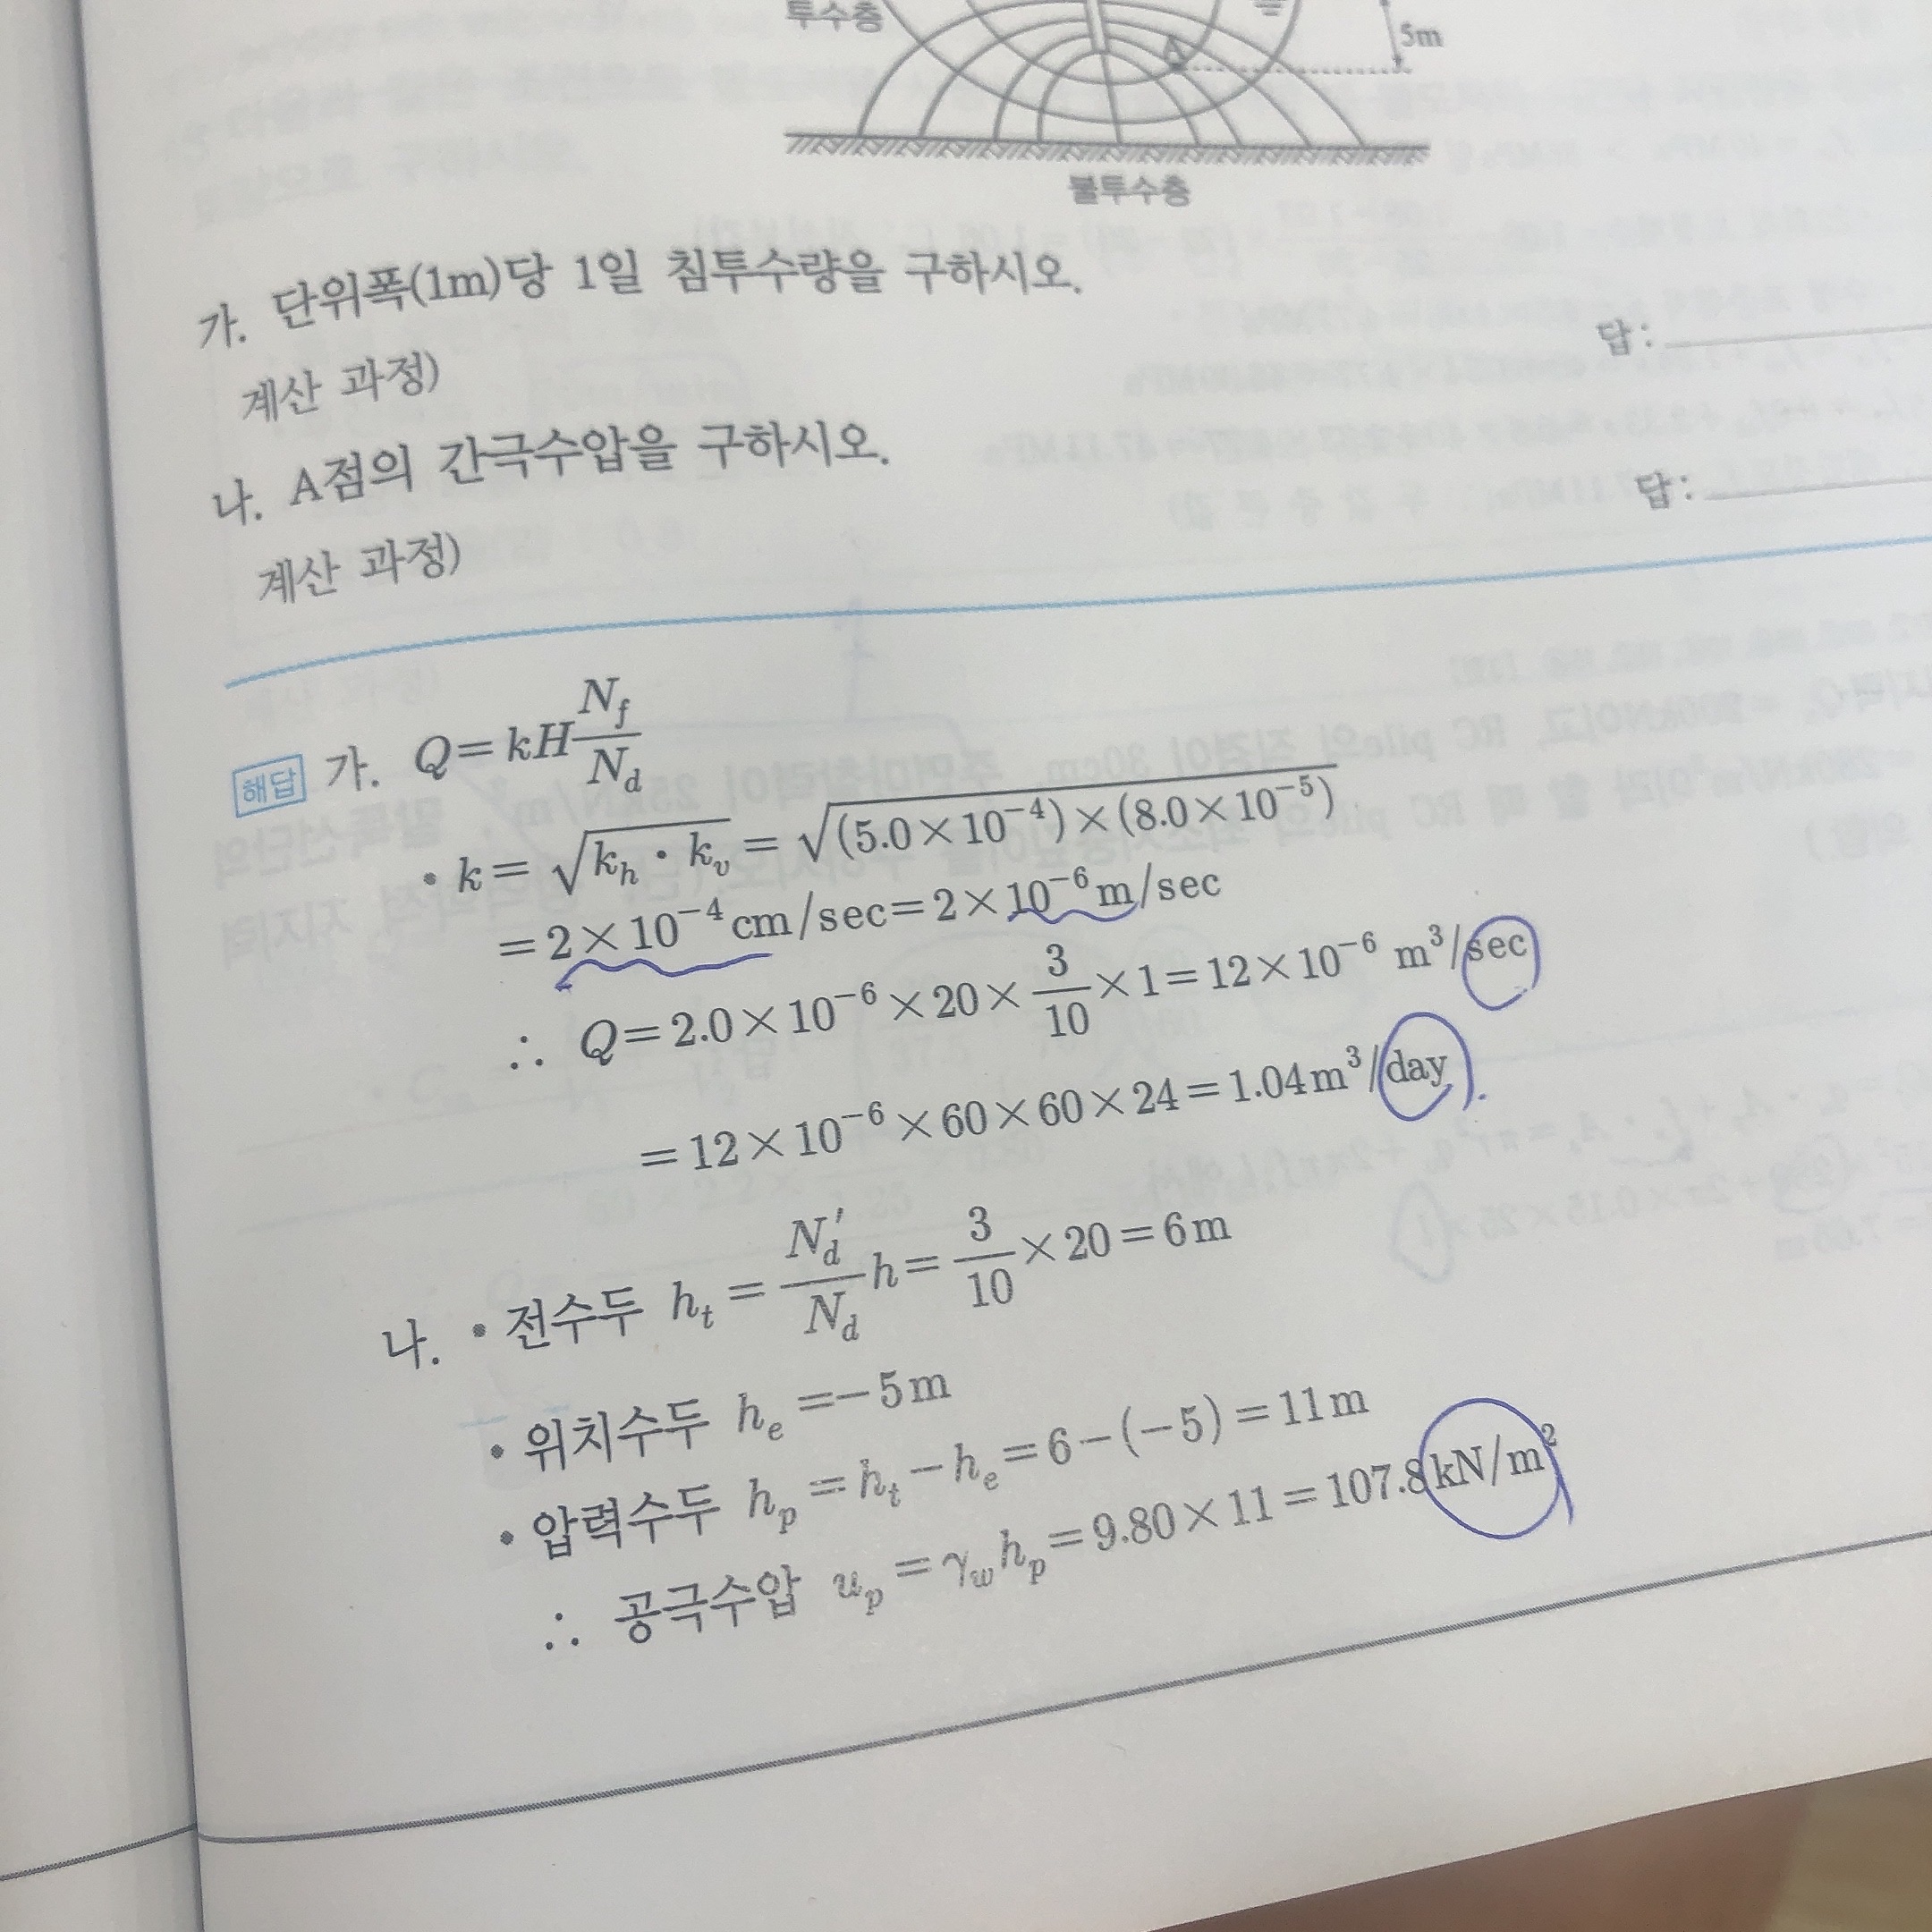 투수층
A
5m
불투수층
가. 단위폭(1m)당 1일 침투수량을 구하시오.
계산 과정)
답 :
나. A점의 간극수압을 구하시오.
계산 과정)
답 :
해답 가. Q=kH\frac{N_f}{N_d}
• k=\sqrt{k_h・k_v}=\sqrt{(5.0×10^{-4})×(8.0×10^{-5})}
=2×10^{-4}cm/sec=2×10^{-6}m/sec
∴ Q=2.0×10^{-6}×20×\frac{3}{10}×1=12×10^{-6} m³/sec
=12×10^{-6}×60×60×24=1.04m³/day
나. • 전수두 h_t=\frac{N_d'}{N_d}h=\frac{3}{10}×20=6m
• 위치수두 h_e=-5m
• 압력수두 h_p=h_t-h_e=6-(-5)=11m
∴ 공극수압 u_p=γ_w h_p=9.80×11=107.8kN/m²